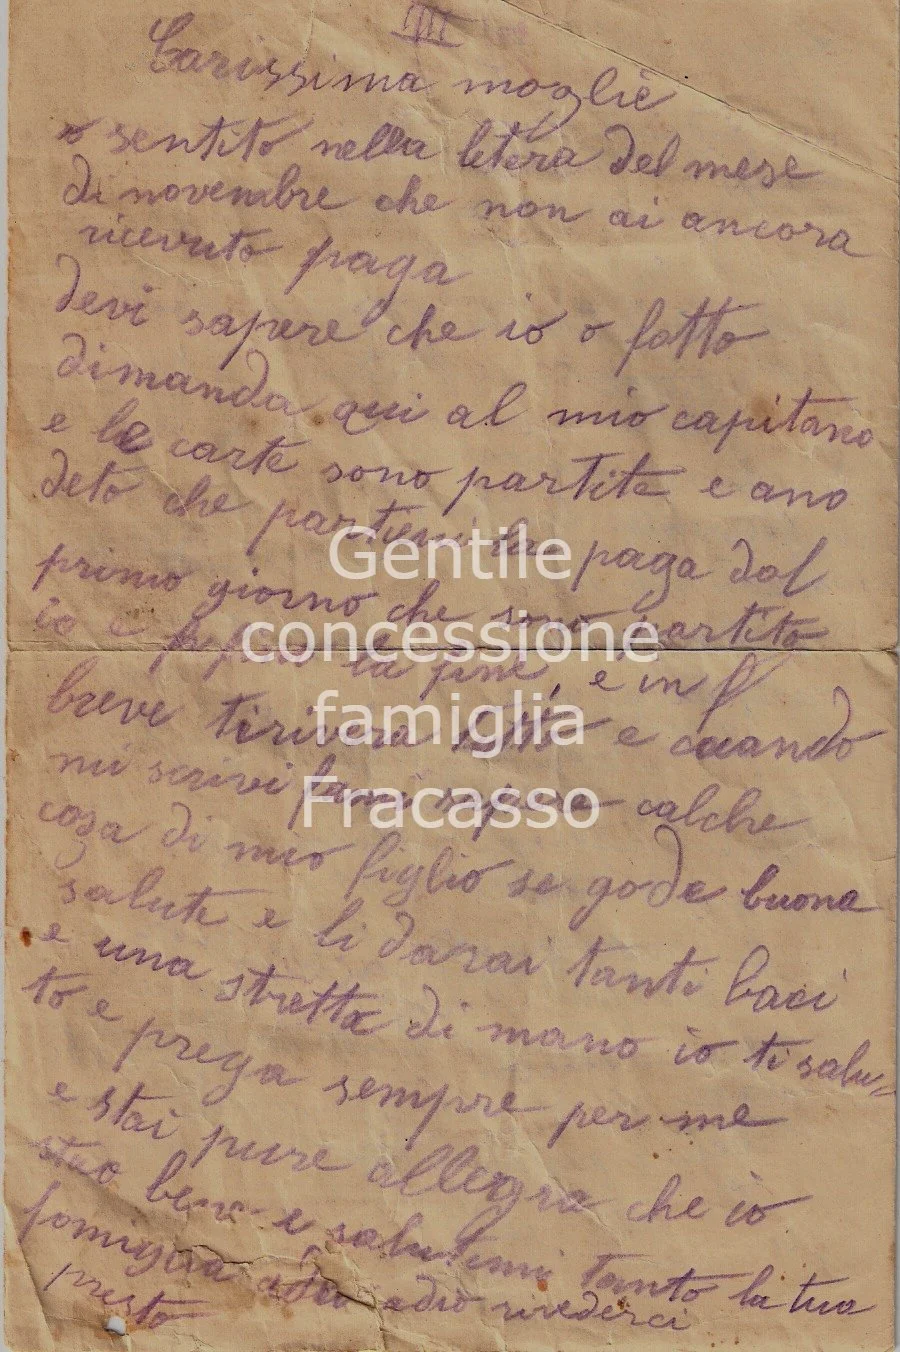 III
Carissima moglie
o sentito nella letera del mese
di novembre che non ai ancora
ricevuto paga
devi sapere che io o fatto
dimanda qui al mio capitano
e le carte sono partite e ano
deto che paga dal
primo giorno che sono partito
io e la fine, e in
breve tirivera tutto e cuando
mi scrivi fami sapere calche
coza di mio figlio se gode buona
salute e li darai tanti baci
e una stretta di mano io ti salu=
to e prega sempre per me
e stai pure allegra che io
stao bene e salutimi tanto la tua
famiglia adio adio rivederci
presto
Gentile
concessione
famiglia
Fracasso